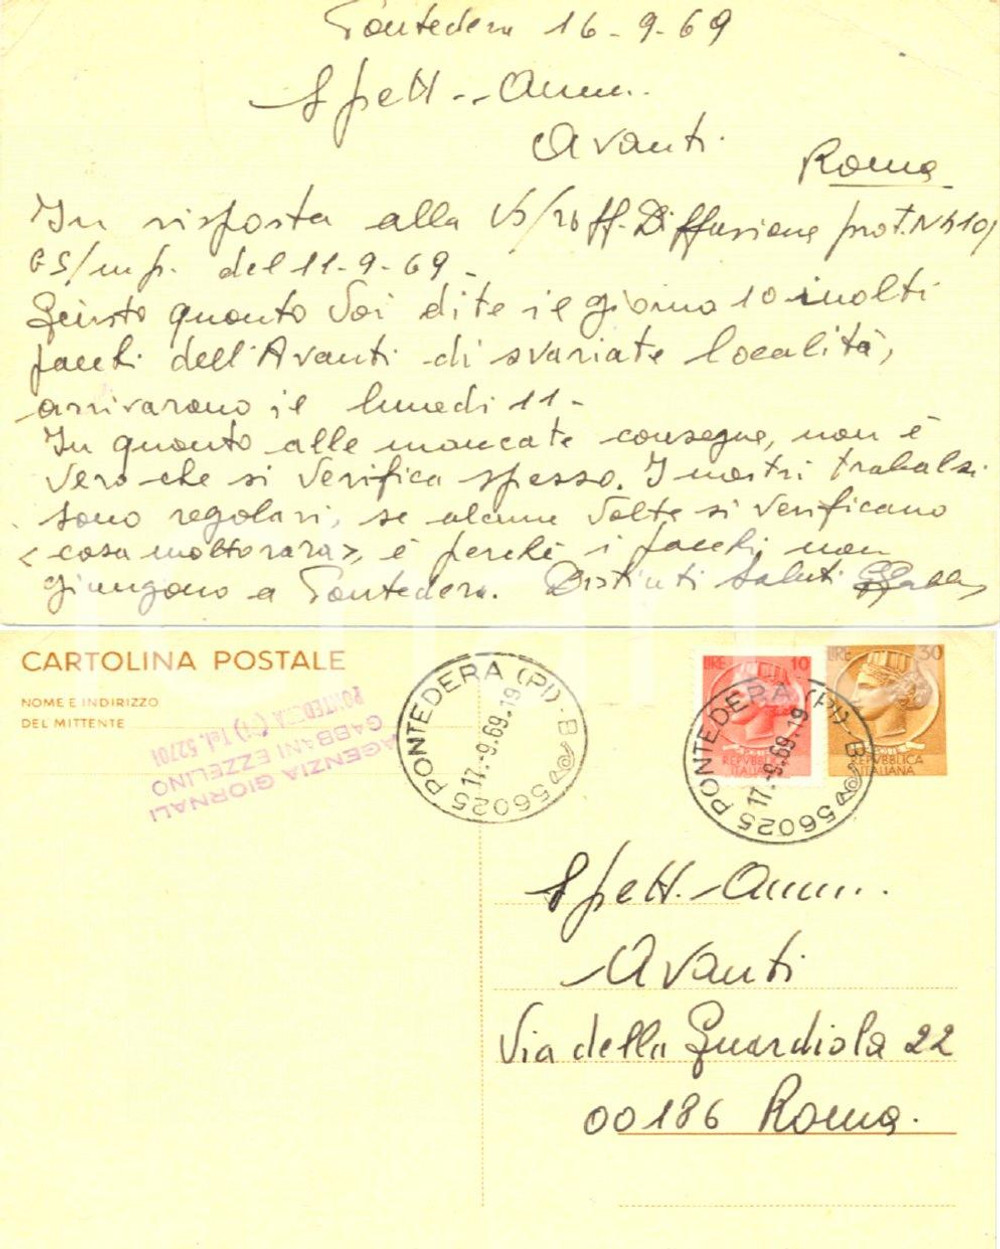 Pontedera 16-9-69
Spett. Amm.
Avanti
Roma
In risposta alla Vs/ Uff. Diffusione prot. N 410/
GS/mp. del 11-9-69-
Giusto quanto Voi dite il giorno 10 molti
pacchi dell'Avanti di svariate località,
arrivarono il lunedì 11-
In quanto alle mancate consegne, non è
vero che si verifica spesso. I nostri
sono regolari, se alcune volte si verificano
<cosa molto rara>, è perché i pacchi non
giungono a Pontedera. Distinti Saluti
CARTOLINA POSTALE
NOME E INDIRIZZO
DEL MITTENTE
AGENZIA GIORNALI
GABBANI EZZELINO
PONTEDERA (PI) Tel. 52701
56025 PONTEDERA (PI) - B
17.-9.69.19
LIRE 10
REPVBBLICA
ITALIANA
LIRE 30
REPVBBLICA
ITALIANA
56025 PONTEDERA (PI) - B
17.-9.69.19
Spett. Amm.
Avanti
Via della Guardiola 22
00186 Roma.